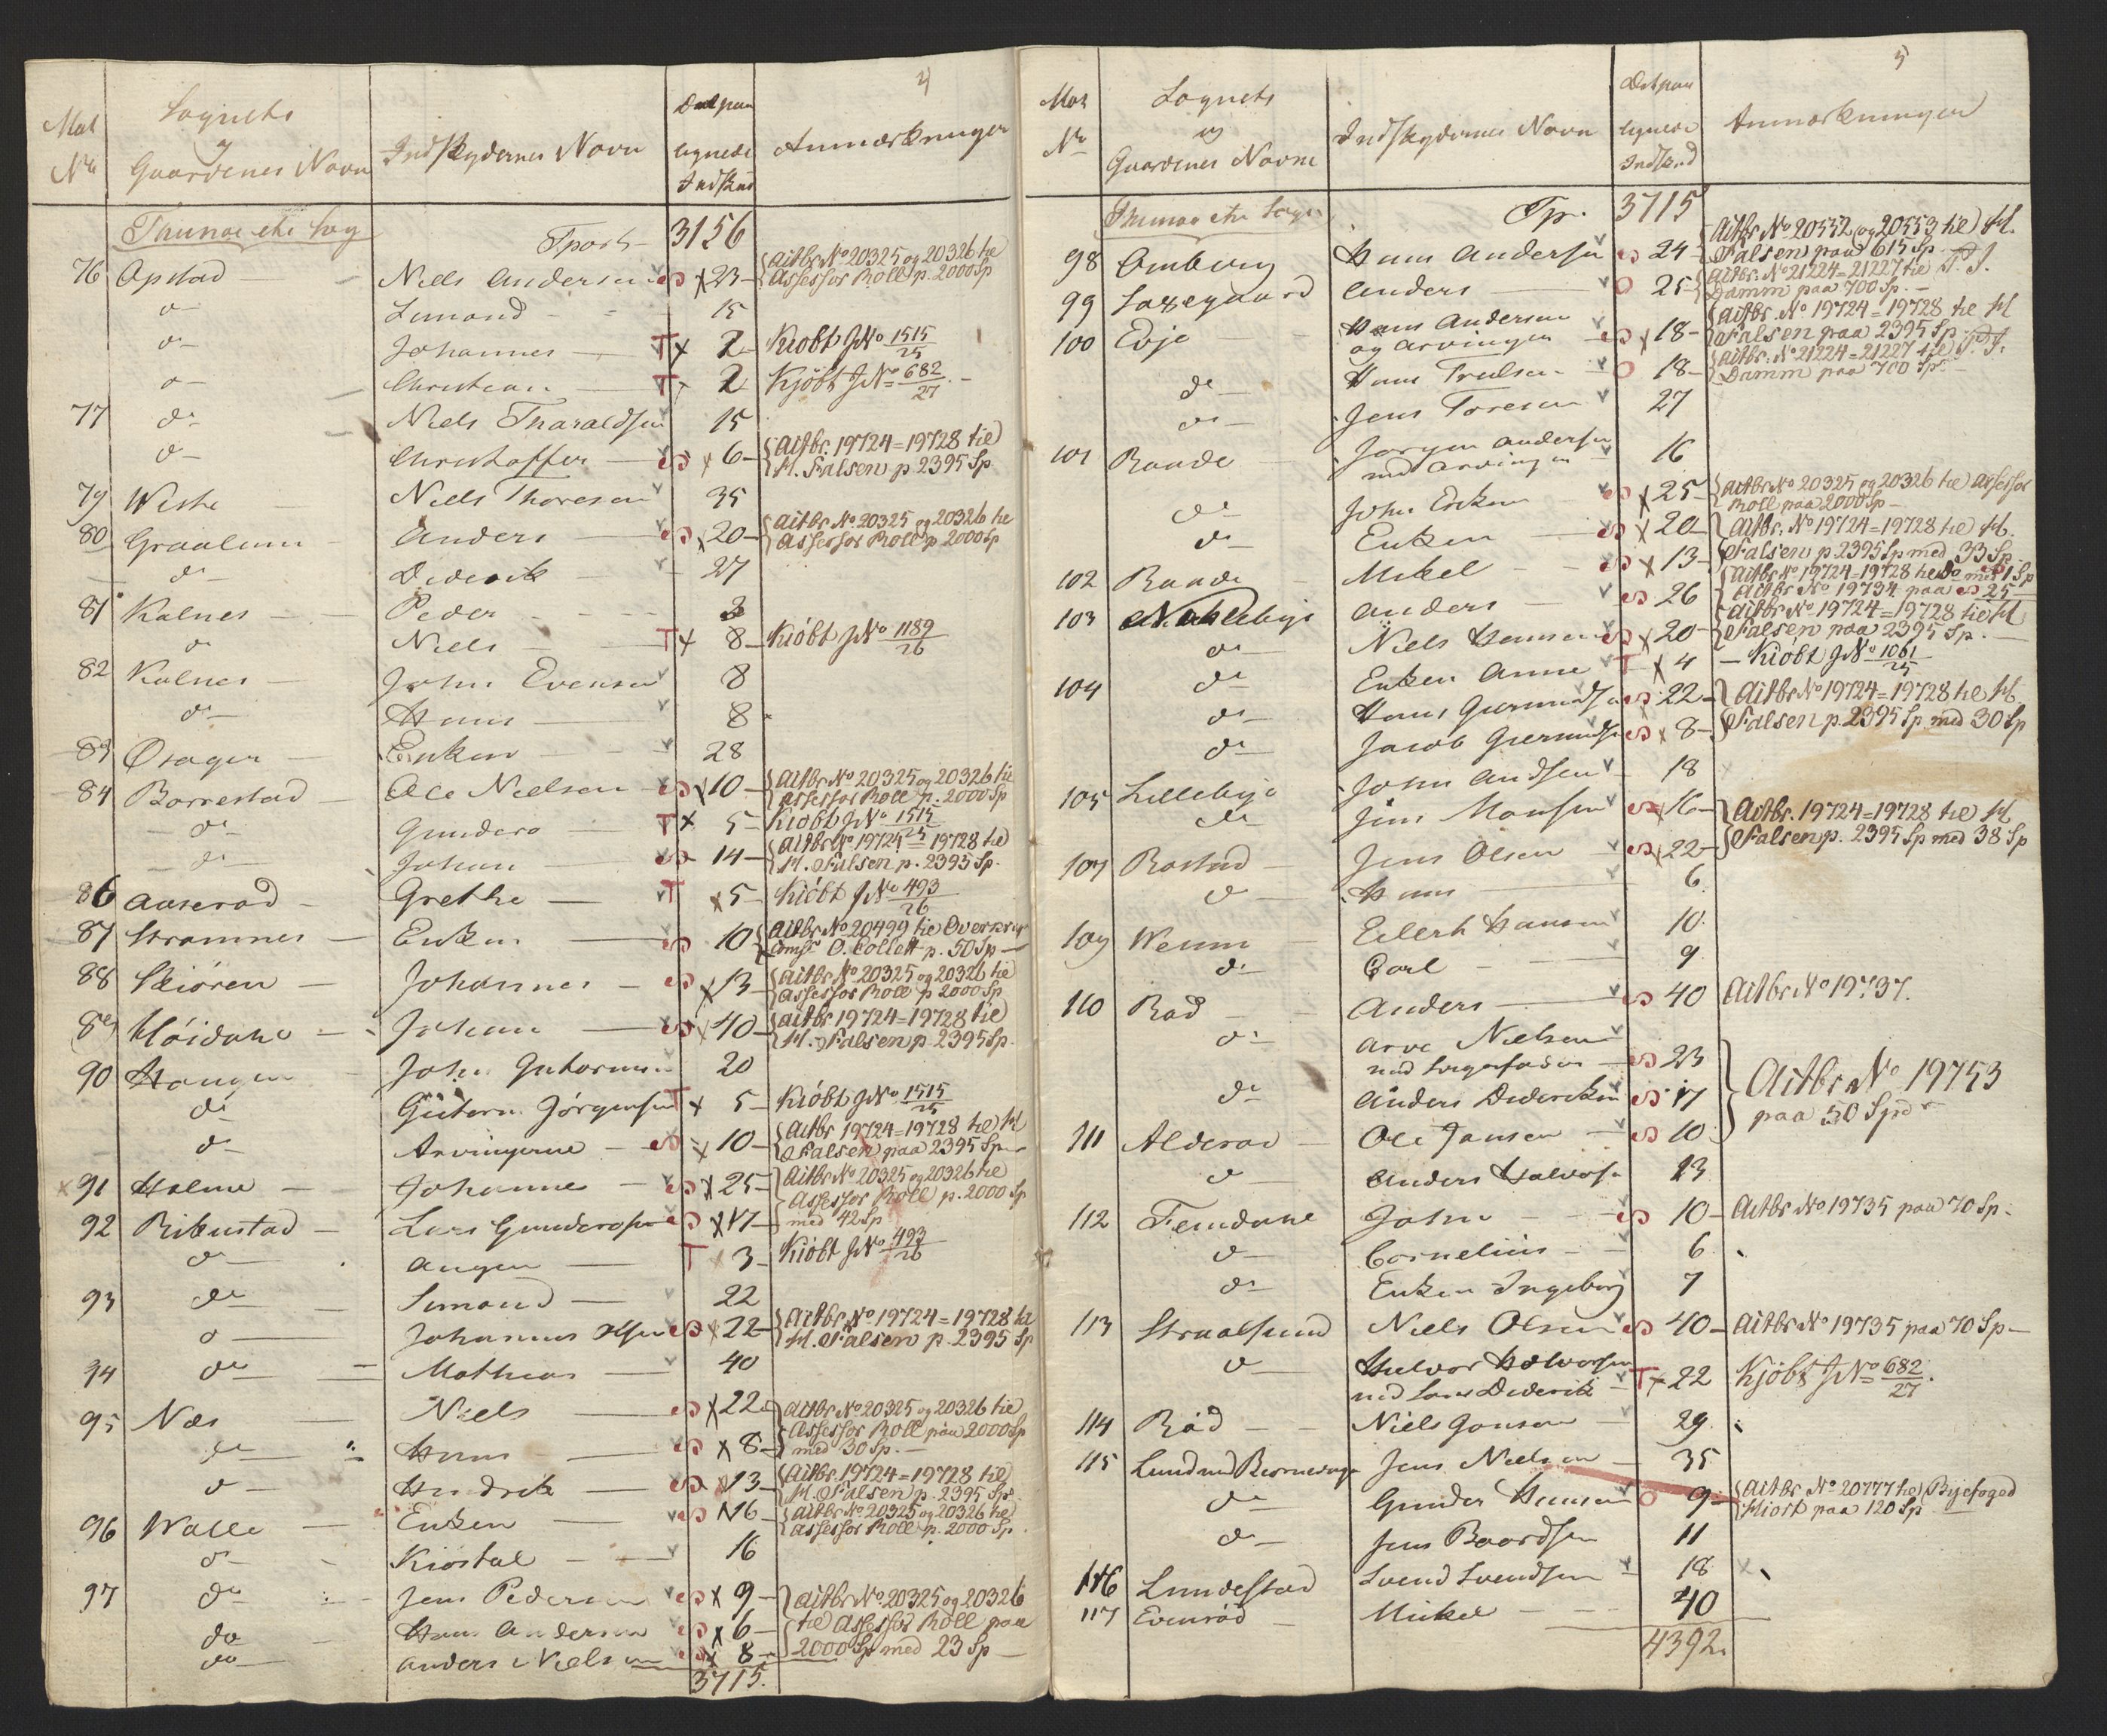 4
Mat No | Sognets og Gaardenes Navn | Indskydernes Navn | Det paa lignede Indskud | Anmærkninger
Thunøe etc Sog | Tport | 3156
76 | Opstad | Niels Andersen | 23 | Actbr No 20325 og 20326 til Assessor Roll p. 2000 Sp
d | Simond | 15
d | Johannes | T x 2 | Kiøbt J No 1515/25
d | Christian | T 2 | Kjøbt J No 682/27
77 | do | Niels Tharaldsen | 15
do | Christoffer | x 6 | Actbr. 19724=19728 til H. Falsen p. 2395 Sp
79 | Wiste | Niels Thoresen | 35
80 | Graalum | Anders | x 20 | Actbr No 20325 og 20326 til Assessor Roll p. 2000 Sp
do | Diderik | 27
81 | Kalnes | Peder | 3
d | Niels | T x 8 | Kiøbt J No 1189/26
82 | Kalnes | John Evensen | 8
do | Hans | 8
83 | Osager | Enken | 28
84 | Borrestad | Ole Nielsen | x 10 | Actbr No 20325 og 20326 til Assessor Roll p. 2000 Sp
do | Gunder | T x 5 | Kiøbt J No 1515/25
do | Johan | 14 | Actbr No 19724=19728 til H. Falsen p. 2395 Sp.
86 | Aaserød | Grethe | T x 5 | Kiøbt J No 493/26
87 | Stramnes | Enken | 10 | Actbr No 20499 til Overkrigs Coms O. Collett p. 50 Sp
88 | Skiøren | Johannes | x 13 | Actbr No 20325 og 20326 til Assessor Roll p 2000 Sp
89 | Høidahl | Johan | x 40 | Actbr 19724=19728 til H. Falsen p. 2395 Sp.
90 | Haugen | John Guttormsen | 20
do | Guttorm Jørgensen | T x 5 | Kiøbt J No 1515/25
do | Arvingerne | x 10 | Actbr 19724=19728 til H Falsen paa 2395 Sp
x 91 | Holme | Johannes | x 25 | Actbr No 20325 og 20326 til
92 | Ribustad | Lars Gundersen | x 17 | Assessor Roll p. 2000 Sp med 42 Sp
do | Aagen | T 3 | Kiøbt J No 493/26
93 | do | Simond | 22
d | Johannes Olsen | x 22 | Actbr No 19724=19728 til H. Falsen p. 2395 Sp
94 | do | Mathias | 40
95 | Næs | Niels | x 22 | Actbr No 20325 og 20326 til
do | Hans | x 8 | Assessor Roll paa 2000 Sp med 30 Sp.
d | Hendrik | x 13 | Actbr. 19724=19728 til H. Falsen p. 2395 Sp.
96 | Walle | Enken | x 16 | Actbr No 20325 og 20326 til Assessor Roll p. 2000 Sp
do | Kiøstal | 16
97 | do | Jens Pedersen | x 9 | Actbr No 20325 og 20326
do | Hans Andersen | x 6 | til Assessor Roll paa
do | Anders Nielsen | x 8 | 2000 Sp med 23 Sp
3715.
5
Mat No | Sognets og Gaardenes Navne | Indskydernes Navn | Det paa lignede Indskud | Anmærkninger
Thunøe etc Sogn | Tp. | 3715
98 | Omberg | Hans Andersen | 24 | Actbr No 20552 og 20553 til H. Falsen paa 615 Sp
99 | Saxegaard | Anders | 25 | Actbr. No 21224=21227 til P. J. Damm paa 700 Sp.
100 | Evje | Hans Andersen og Arvingen | x 18 | Actbr. No 19724=19728 til H Falsen paa 2395 Sp
do | Hans Trulsen | 18 | Actbr. No 21224=21227 til P. J. Damm paa 700 Sp.
do | Jens Toresen | 27
101 | Raade | Jørgen Andersen med Arvingen | 16
do | John Enken | x 25 | Actbr No 20325 og 20326 til Assessor Roll paa 2000 Sp
do | Enken | x 20 | Actbr. No 19724=19728 til H.
102 | Raade | Mikel | x 13 | Falsen p. 2395 Sp med 33 Sp
103 | Nakkebye | Anders | 26 | Actbr No 19724=19728 til do med 1 Sp Actbr No 19734 paa 25
do | Niels Hansen | x 20 | Actbr No 19724=19728 til H Falsen paa 2395 Sp.
104 | do | Enken Anne | T x 4 | Kiøbt J No 1061/25
do | Hans Giermundsen | 22 | Actbr No 19724=19728 til H.
do | Jacob Giermundsen | x 8 | Falsen p. 2395 Sp med 30 Sp
105 | Lillebye | John Andsen | 18
do | Jens Monsen | 16 | Actbr. 19724=19728 til H
107 | Rostad | Jens Olsen | 22 | Falsen p. 2395 Sp med 38 Sp
d | Hans | 6.
109 | Wenn | Eilert Hansen | 10.
do | Carl | 9
110 | Rød | Anders | 40 | Actbr No 19737.
do | Arve Nielsen med | 23 | Actbr No 19753
do | Anders Dideriksen | 17 | paa 50 Spd
111 | Alderød | Ole Jansen | 10
d | Anders Halvors | 13
112 | Femdahl | John | 10 | Actbr No 19735 paa 70 Sp.
d | Cornelius | 6
do | Enken Ingeborg | 7
113 | Straalsund | Niels Olsen | 40 | Actbr No 19735 paa 70 Sp
d | Halvor Halvorsen med Lars Diderik | T x 22 | Kjøbt J No 682/27.
114 | Rød | Niels Gonsen | 29.
115 | Lund med | Jens Nielsen | 35
do | Gunder Hansen | 9 | Actbr No 20777 til Byefoged Hiort paa 120 Sp
do | Jens Baardsen | 11
116 | Lundestad | Svend Svendsen | 18
117 | Evenrød | Mickel | 40
4392.